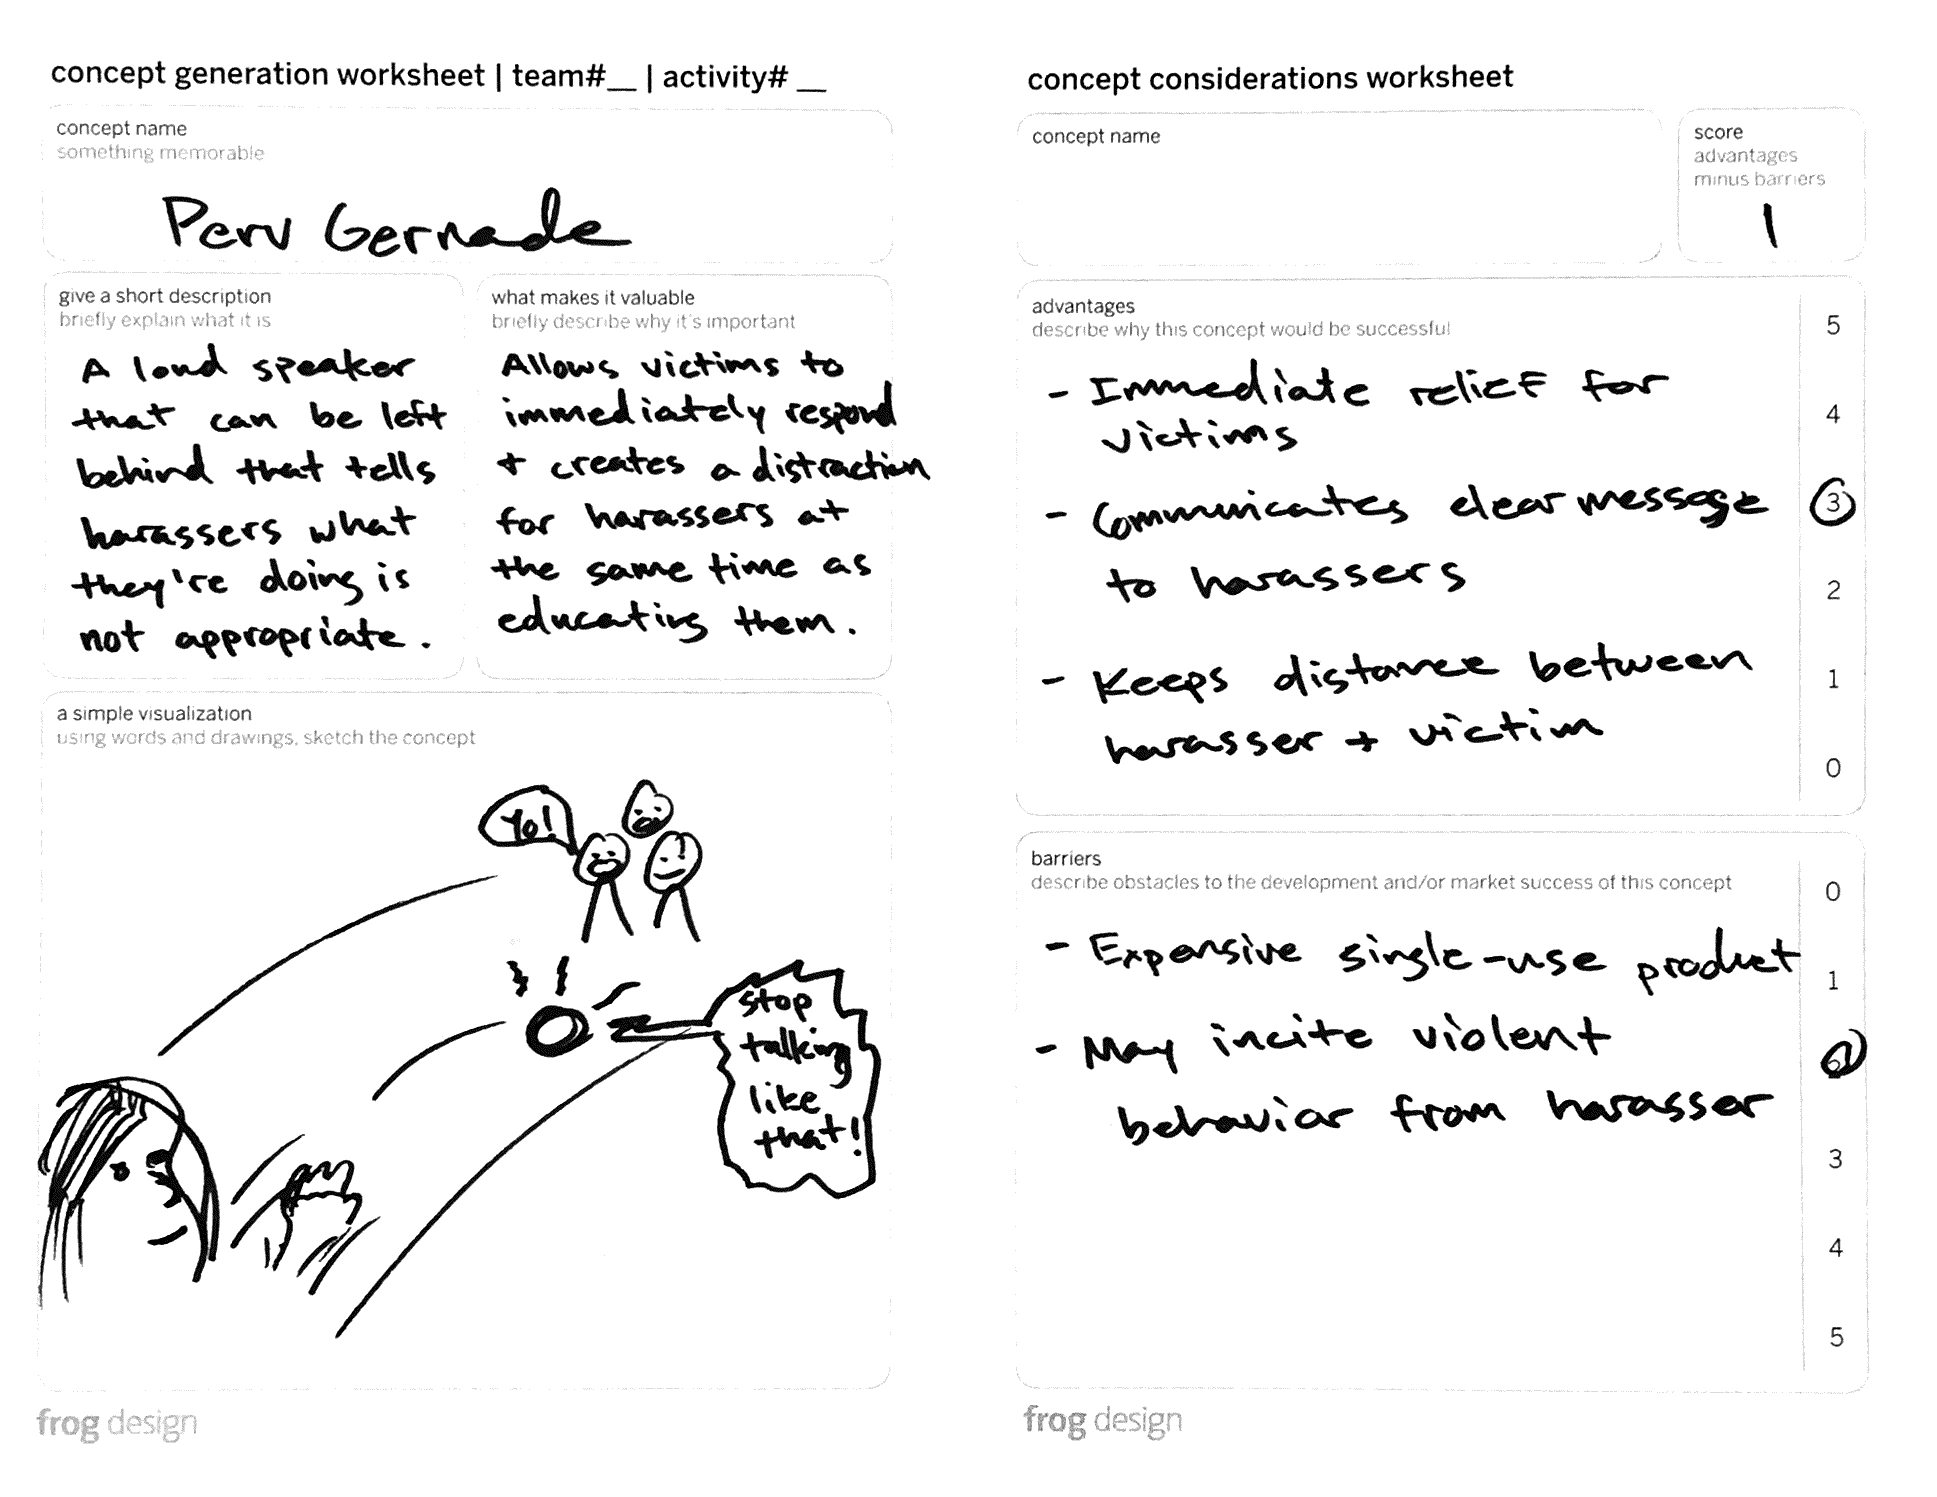 concept generation worksheet | team#__ | activity# __
concept name
something memorable
Perv Gernade
give a short description
briefly explain what it is
A loud speaker
that can be left
behind that tells
harassers what
they're doing is
not appropriate.
what makes it valuable
briefly describe why it's important
Allows victims to
immediately respond
+ creates a distraction
for harassers at
the same time as
educating them.
a simple visualization
using words and drawings, sketch the concept
Yo!
Stop
talking
like
that!
frog design
concept considerations worksheet
concept name
score
advantages
minus barriers
1
advantages
describe why this concept would be successful
- Immediate relief for
victims
- Communicates clear message
to harassers
- Keeps distance between
harasser + victim
5
4
3
2
1
0
barriers
describe obstacles to the development and/or market success of this concept
- Expensive single-use product
- May incite violent
behavior from harasser
0
1
2
3
4
5
frog design